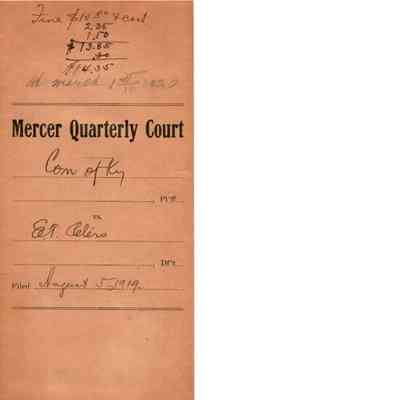 Fine $10.00 & cost
2.35
1.50
$13.85
.50
$14.35
at march 1st 1920
Mercer Quarterly Court
Com of Ky
Pl'ff.
vs.
E.T.
Df't.
Filed August 5 1919.